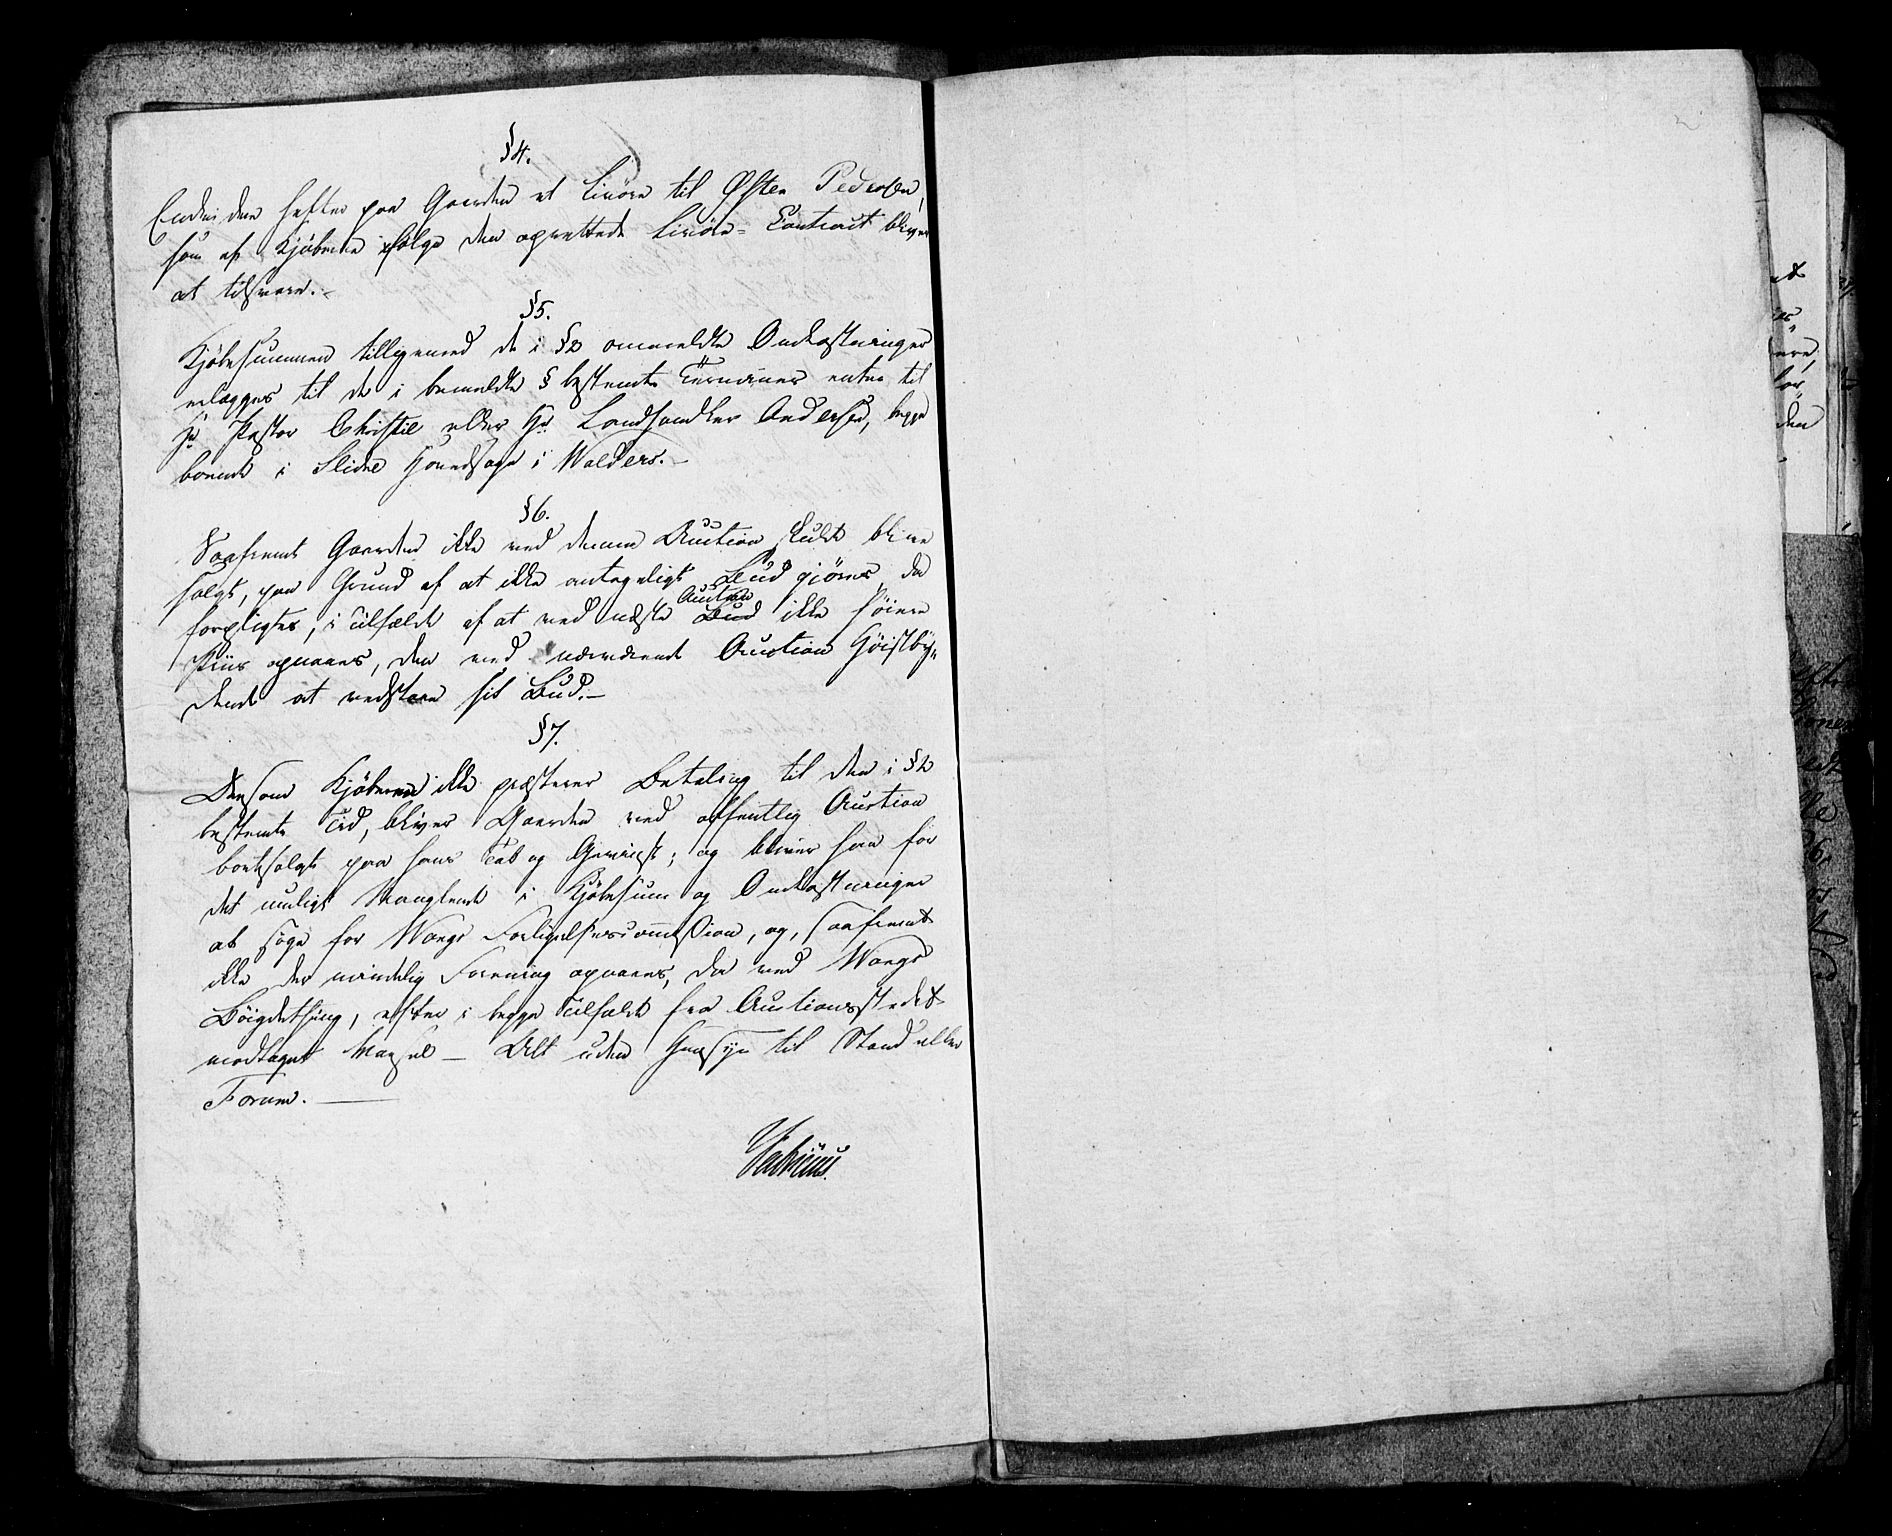 §4.
Endvidere hefter paa Gaarden et Livøre til Østen Pedersen,
som af Kjøberne ifølge den oprettede Livøre-Contract bliver
at tilsvare.-
§5.
Kjøbesummen tilligemed de i §2 ommeldte Omkostninger
erlægges til de i bemeldte § bestemte Terminer enten til
Hr Pastor Christie eller Hr Landhandler Andersen, begge
boende i Slidre Hovedsogn i Walders.-
§6.
Saafremt Gaarden ikke ved denne Auction skulde blive
solgt, paa Grund af at ikke antageligt Bud gjøres, da
forpligtes, i Tilfælde af at ved næste Auction Bud ikke høiere
Priis opnaaes, den ved nærværende Auction Høistby„
dende at vedstaae sit Bud.-
§7.
Dersom Kjøberen ikke præsterer Betaling til den i §2
bestemte Tid, bliver Gaarden ved offentlig Auction
bortsolgt paa hans Tab og Gevinst; og bliver han for
det muligt Manglende i Kjøbesum og Omkostninger
at søge for Wangs Forligelsescommission, og, saafremt
ikke der mindelig Forening opnaaes, da ved Wangs
Bøigdething, efter i begge Tilfælde fra Auctionsstedet
modtaget Varsel - Alt uden Hensyn til Stand eller
Forum.